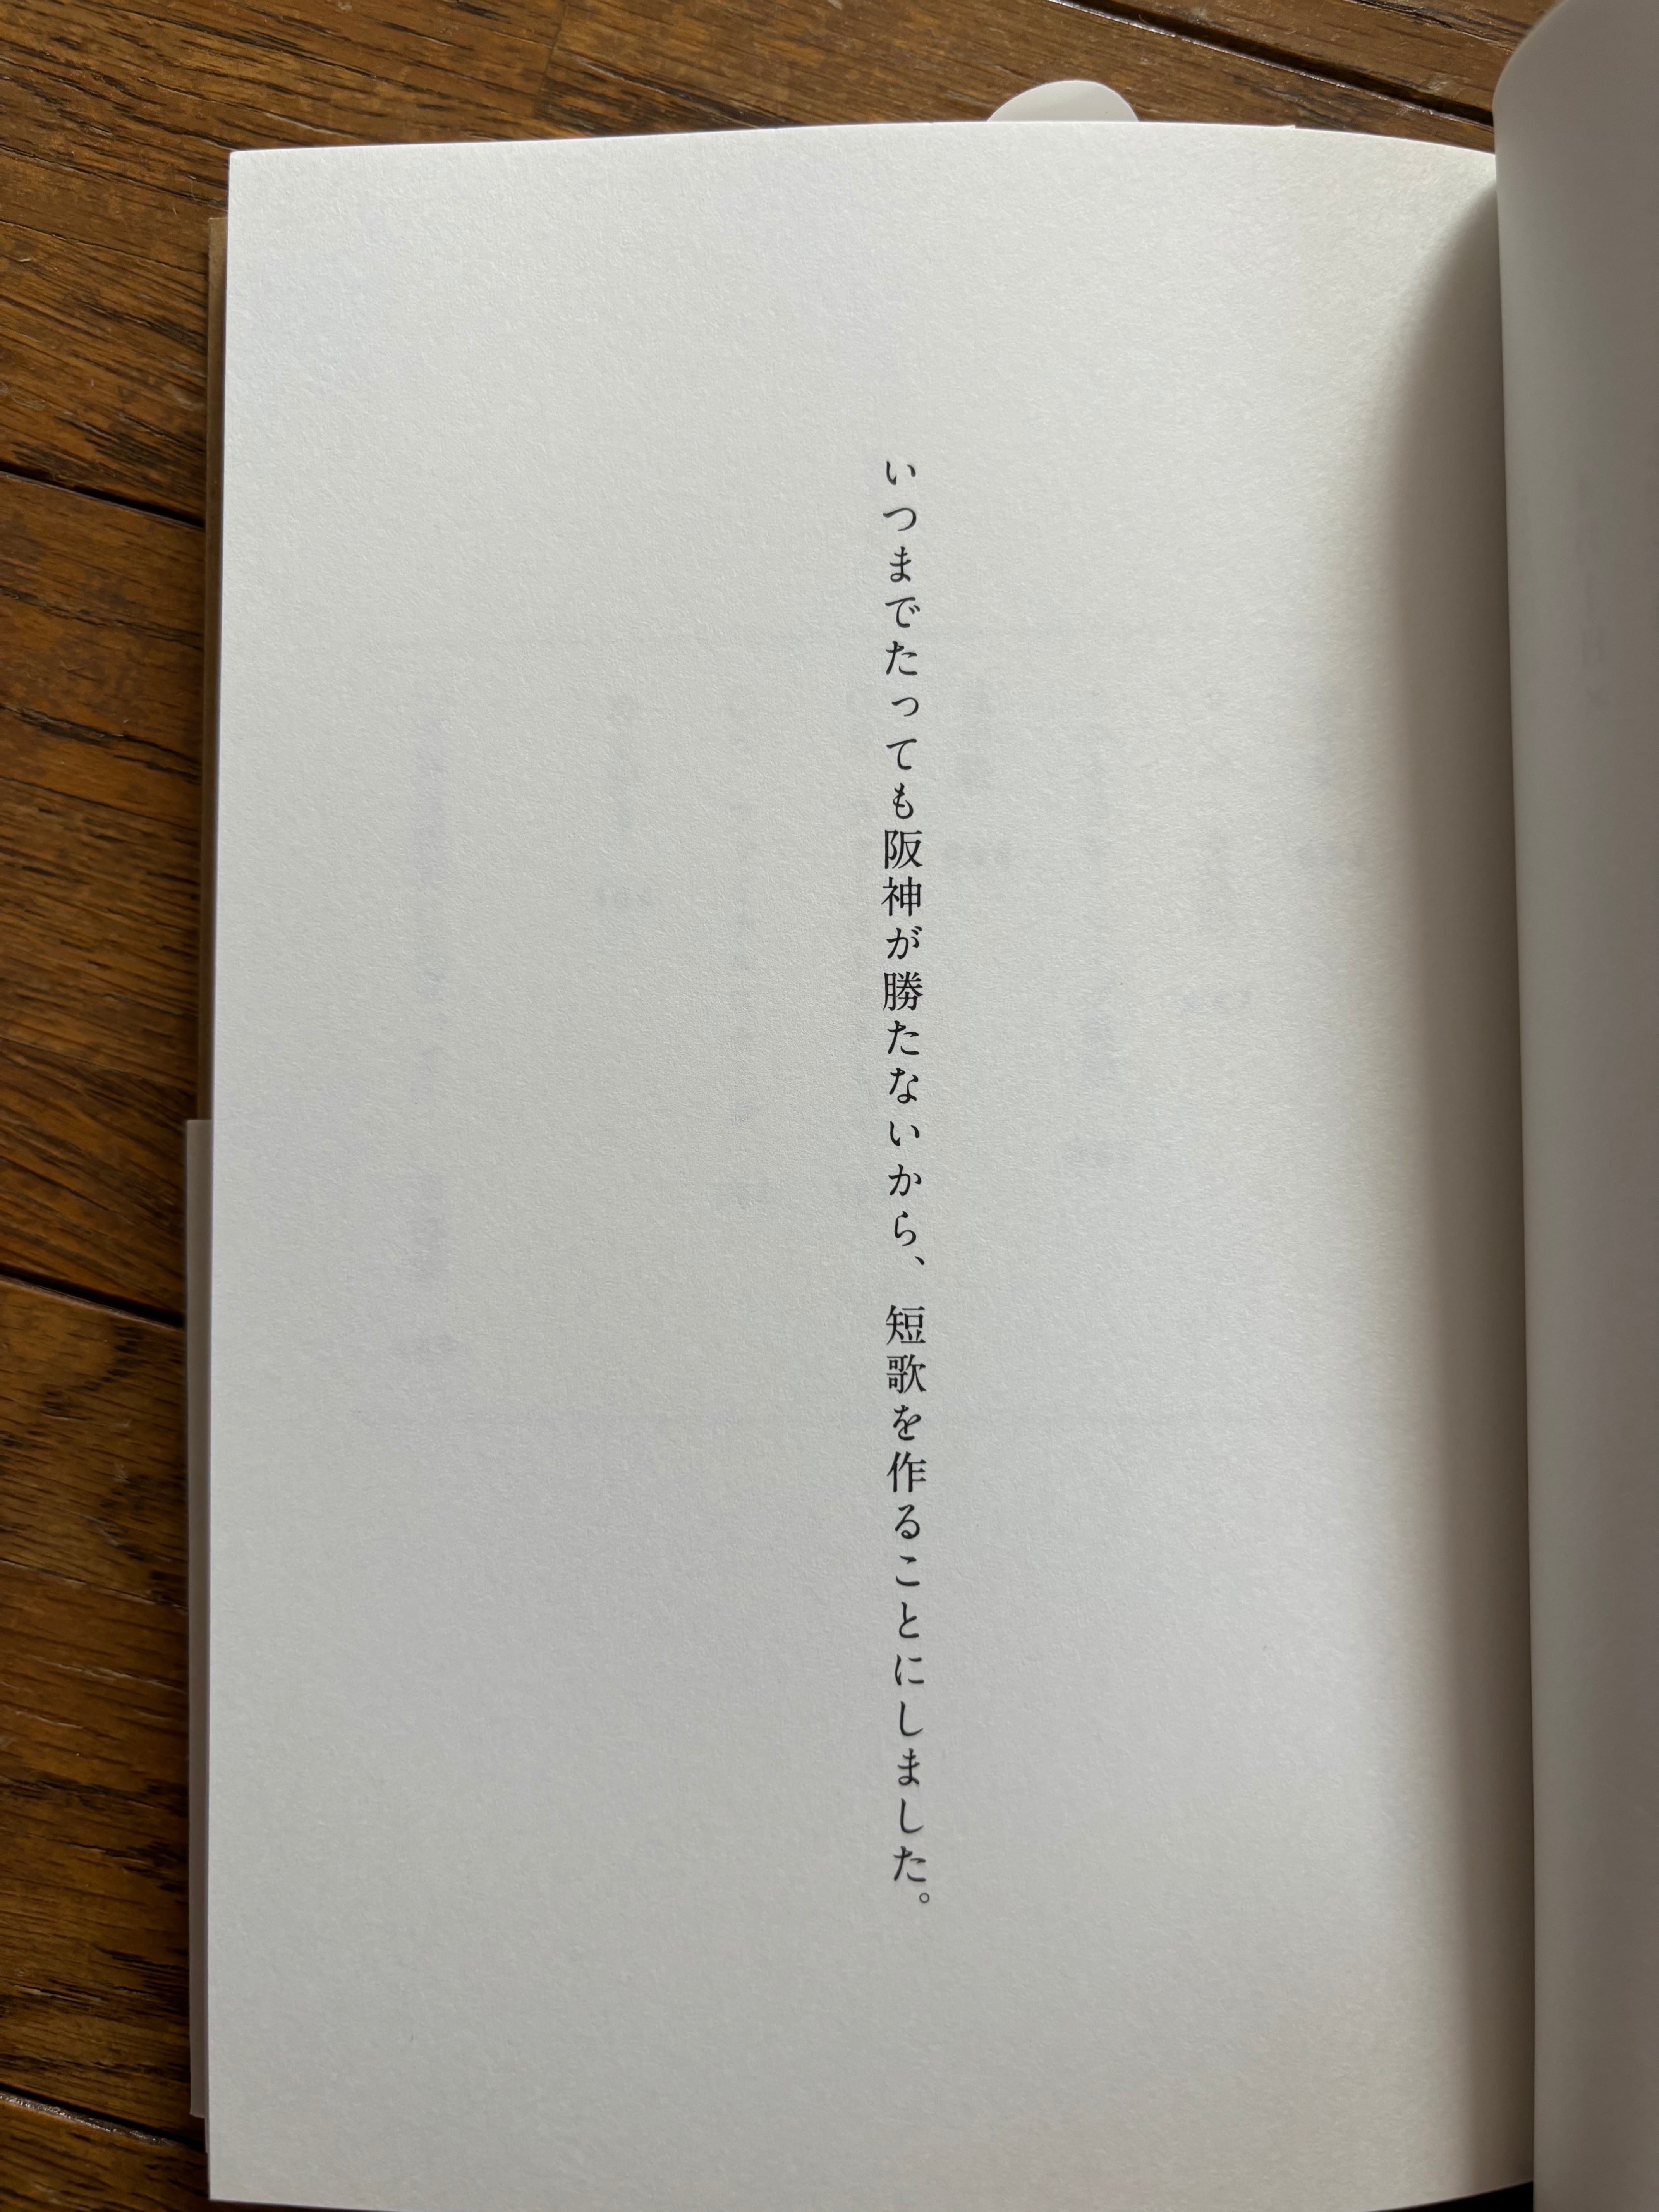 いつまでたっても阪神が勝たないから、短歌を作ることにしました。